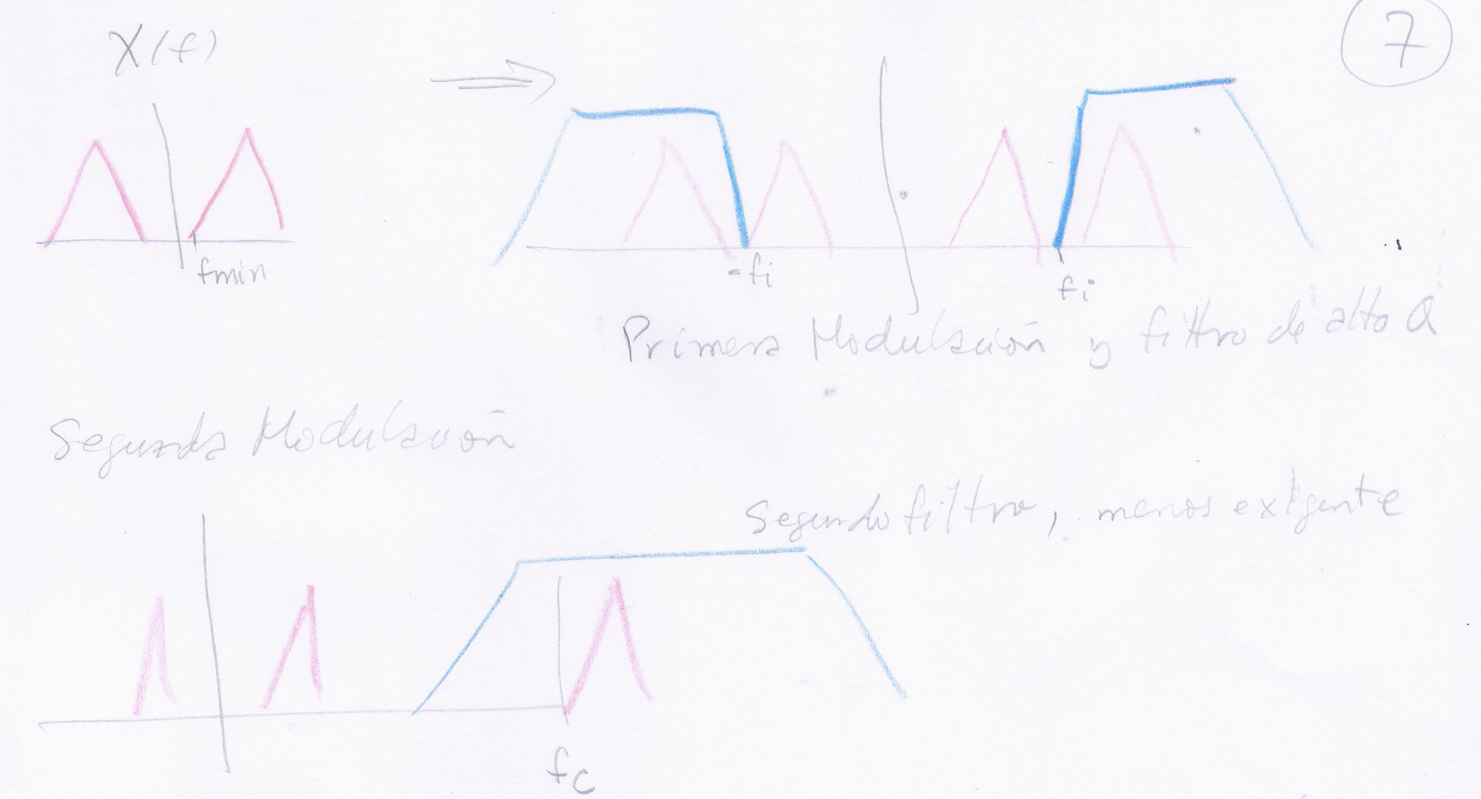 X(f)
7
fmin
-fi
fi
Primera Modulación y filtro de alto Q
Segunda Modulación
Segundo filtro, menos exigente
fc